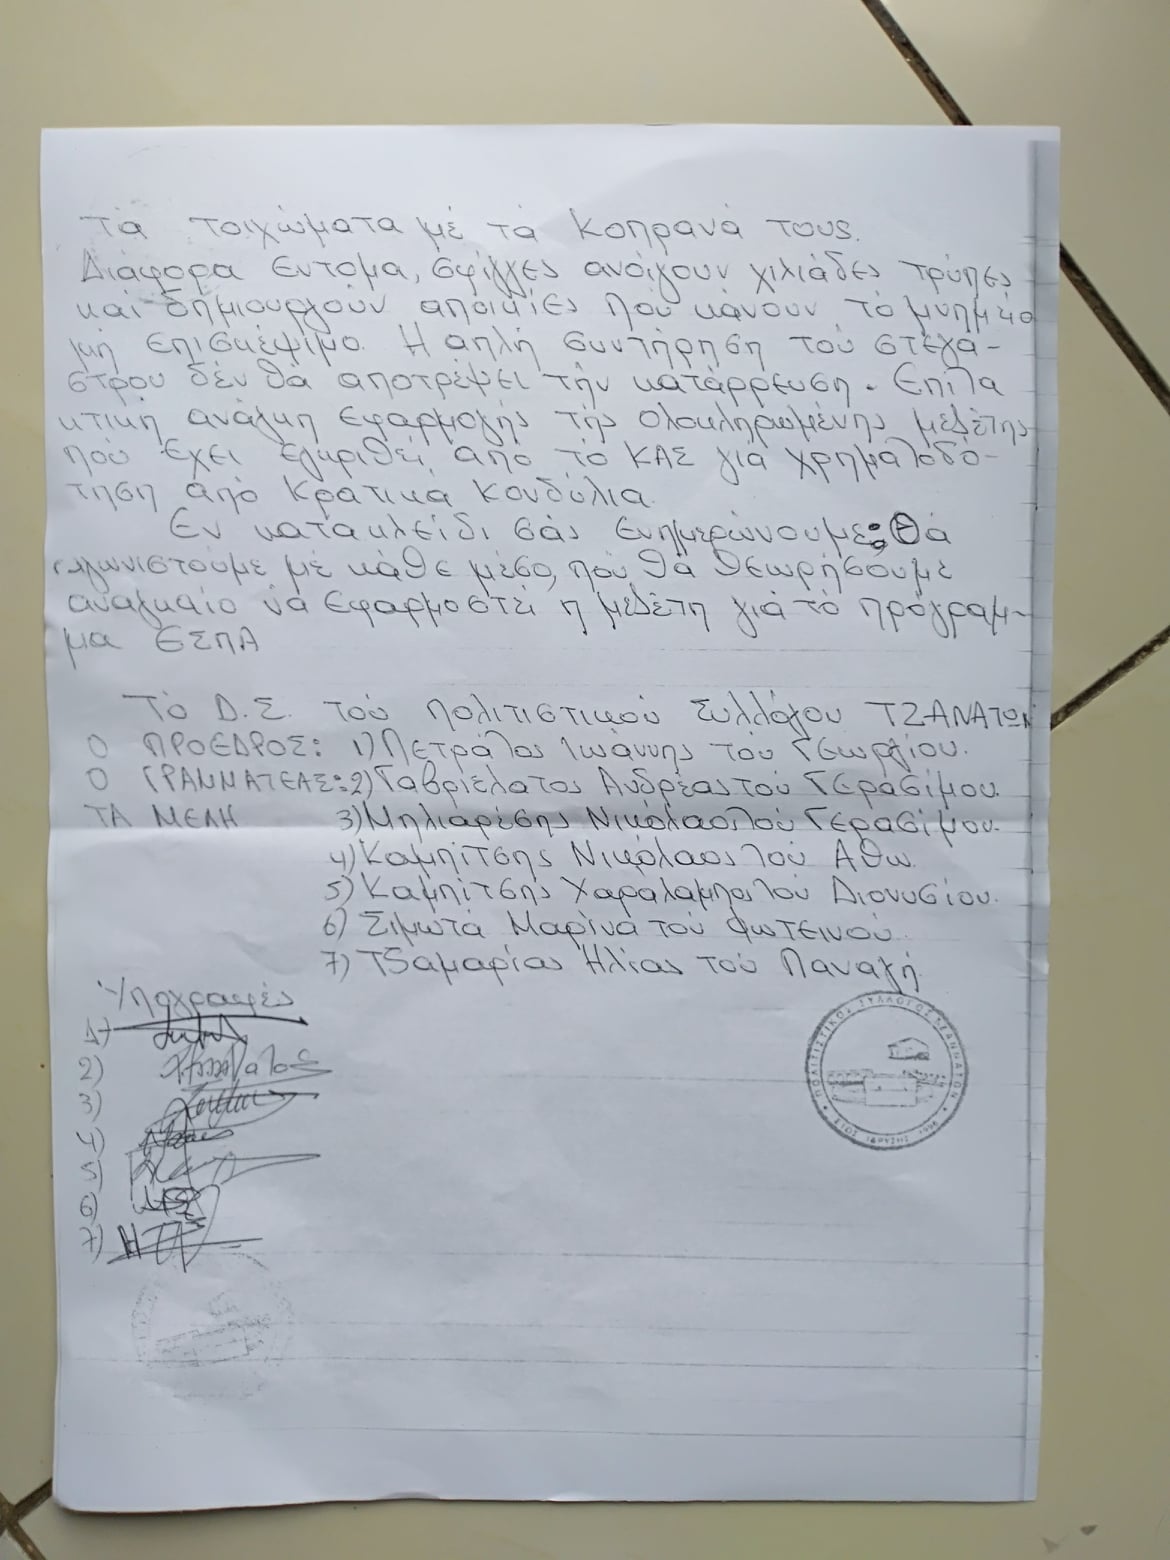 τὰ τοιχώματα μέ τὰ κοπρανά τους.
Διάφορα έντομα, σφίγγες ανοίγουν χιλιάδες τρύπες
και δημιουργούν αποικίες πού κάνουν τό μνημείο
μή επισκέψιμο. Η απλή συντήρηση τού στεγά-
στρου δέν θά αποτρέψει τήν κατάρρευση. Επιτα
κτική ανάγκη εφαρμογής τής ολοκληρωμένης μελέτης
πού έχει εγκριθεί από τό ΚΑΣ για χρηματοδό-
τηση από κρατικά κονδύλια.
Εν κατακλείδι σάς ενημερώνουμε: Θά
αγωνιστούμε μέ κάθε μέσο, πού θά θεωρήσουμε
αναγκαίο νά εφαρμοστεί η μελέτη γιά τό πρόγραμ-
μα ΕΣΠΑ
Τό Δ.Σ. τού Πολιτιστικού Συλλόγου ΤΖΑΝΑΤΩΝ
Ο ΠΡΟΕΔΡΟΣ: 1) Πετράτος Ιωάννης τού Γεωργίου.
Ο ΓΡΑΜΜΑΤΕΑΣ: 2) Γαβριελατος Ανδρέας τού Γερασίμου.
ΤΑ ΜΕΛΗ 3) Μηλιαρέσης Νικόλαος τού Γερασίμου.
4) Καμπίτσης Νικόλαος τού Αθω.
5) Καμπίτσης Χαραλαμπος τού Διονυσίου.
6) Σιμωτά Μαρίνα τού Φωτεινού.
7) Τζαμαρίας Ηλίας τού Παναγή.
Υπογραφές
1)
2)
3)
4)
5)
6)
7)
ΠΟΛΙΤΙΣΤΙΚΟΣ ΣΥΛΛΟΓΟΣ ΤΖΑΝΝΑΤΩΝ
ΕΤΟΣ ΙΔΡΥΣΗΣ 1996